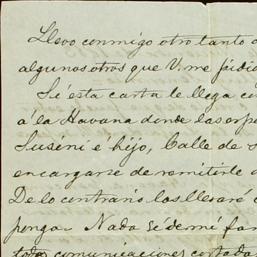 Llevo conmigo otro tanto d
algunos otros que V. me
Si esta carta le llega
á la Havana donde los
Susini é hijo, Calle de
encargarse de remitirle
De lo contrario los llevaré
ponga. Nada sé de mi fa
todas comunicaciones cortadas